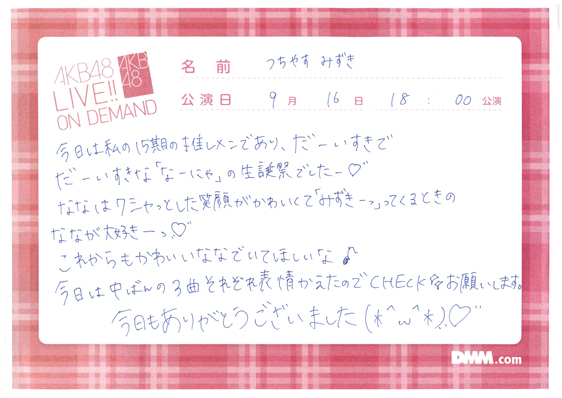 AKB48
LIVE!!
ON DEMAND
AKB
48
名 前 つちやす みずき
公演日 9 月 16 日 18 : 00 公演
今日は私の15期の推しメンであり、だーいすきで
だーいすきな「なーにゃ」の生誕祭でしたー♡
ななはクシャっとした笑顔がかわいくて「みずきーっ」ってくるときの
ななが大好きーっ♡
これからもかわいいななでいてほしいな♪
今日は中ばんの3曲それぞれ表情かえたのでCHECKお願いします。
今日もありがとうございました(*^ω^*)♡
DMM.com